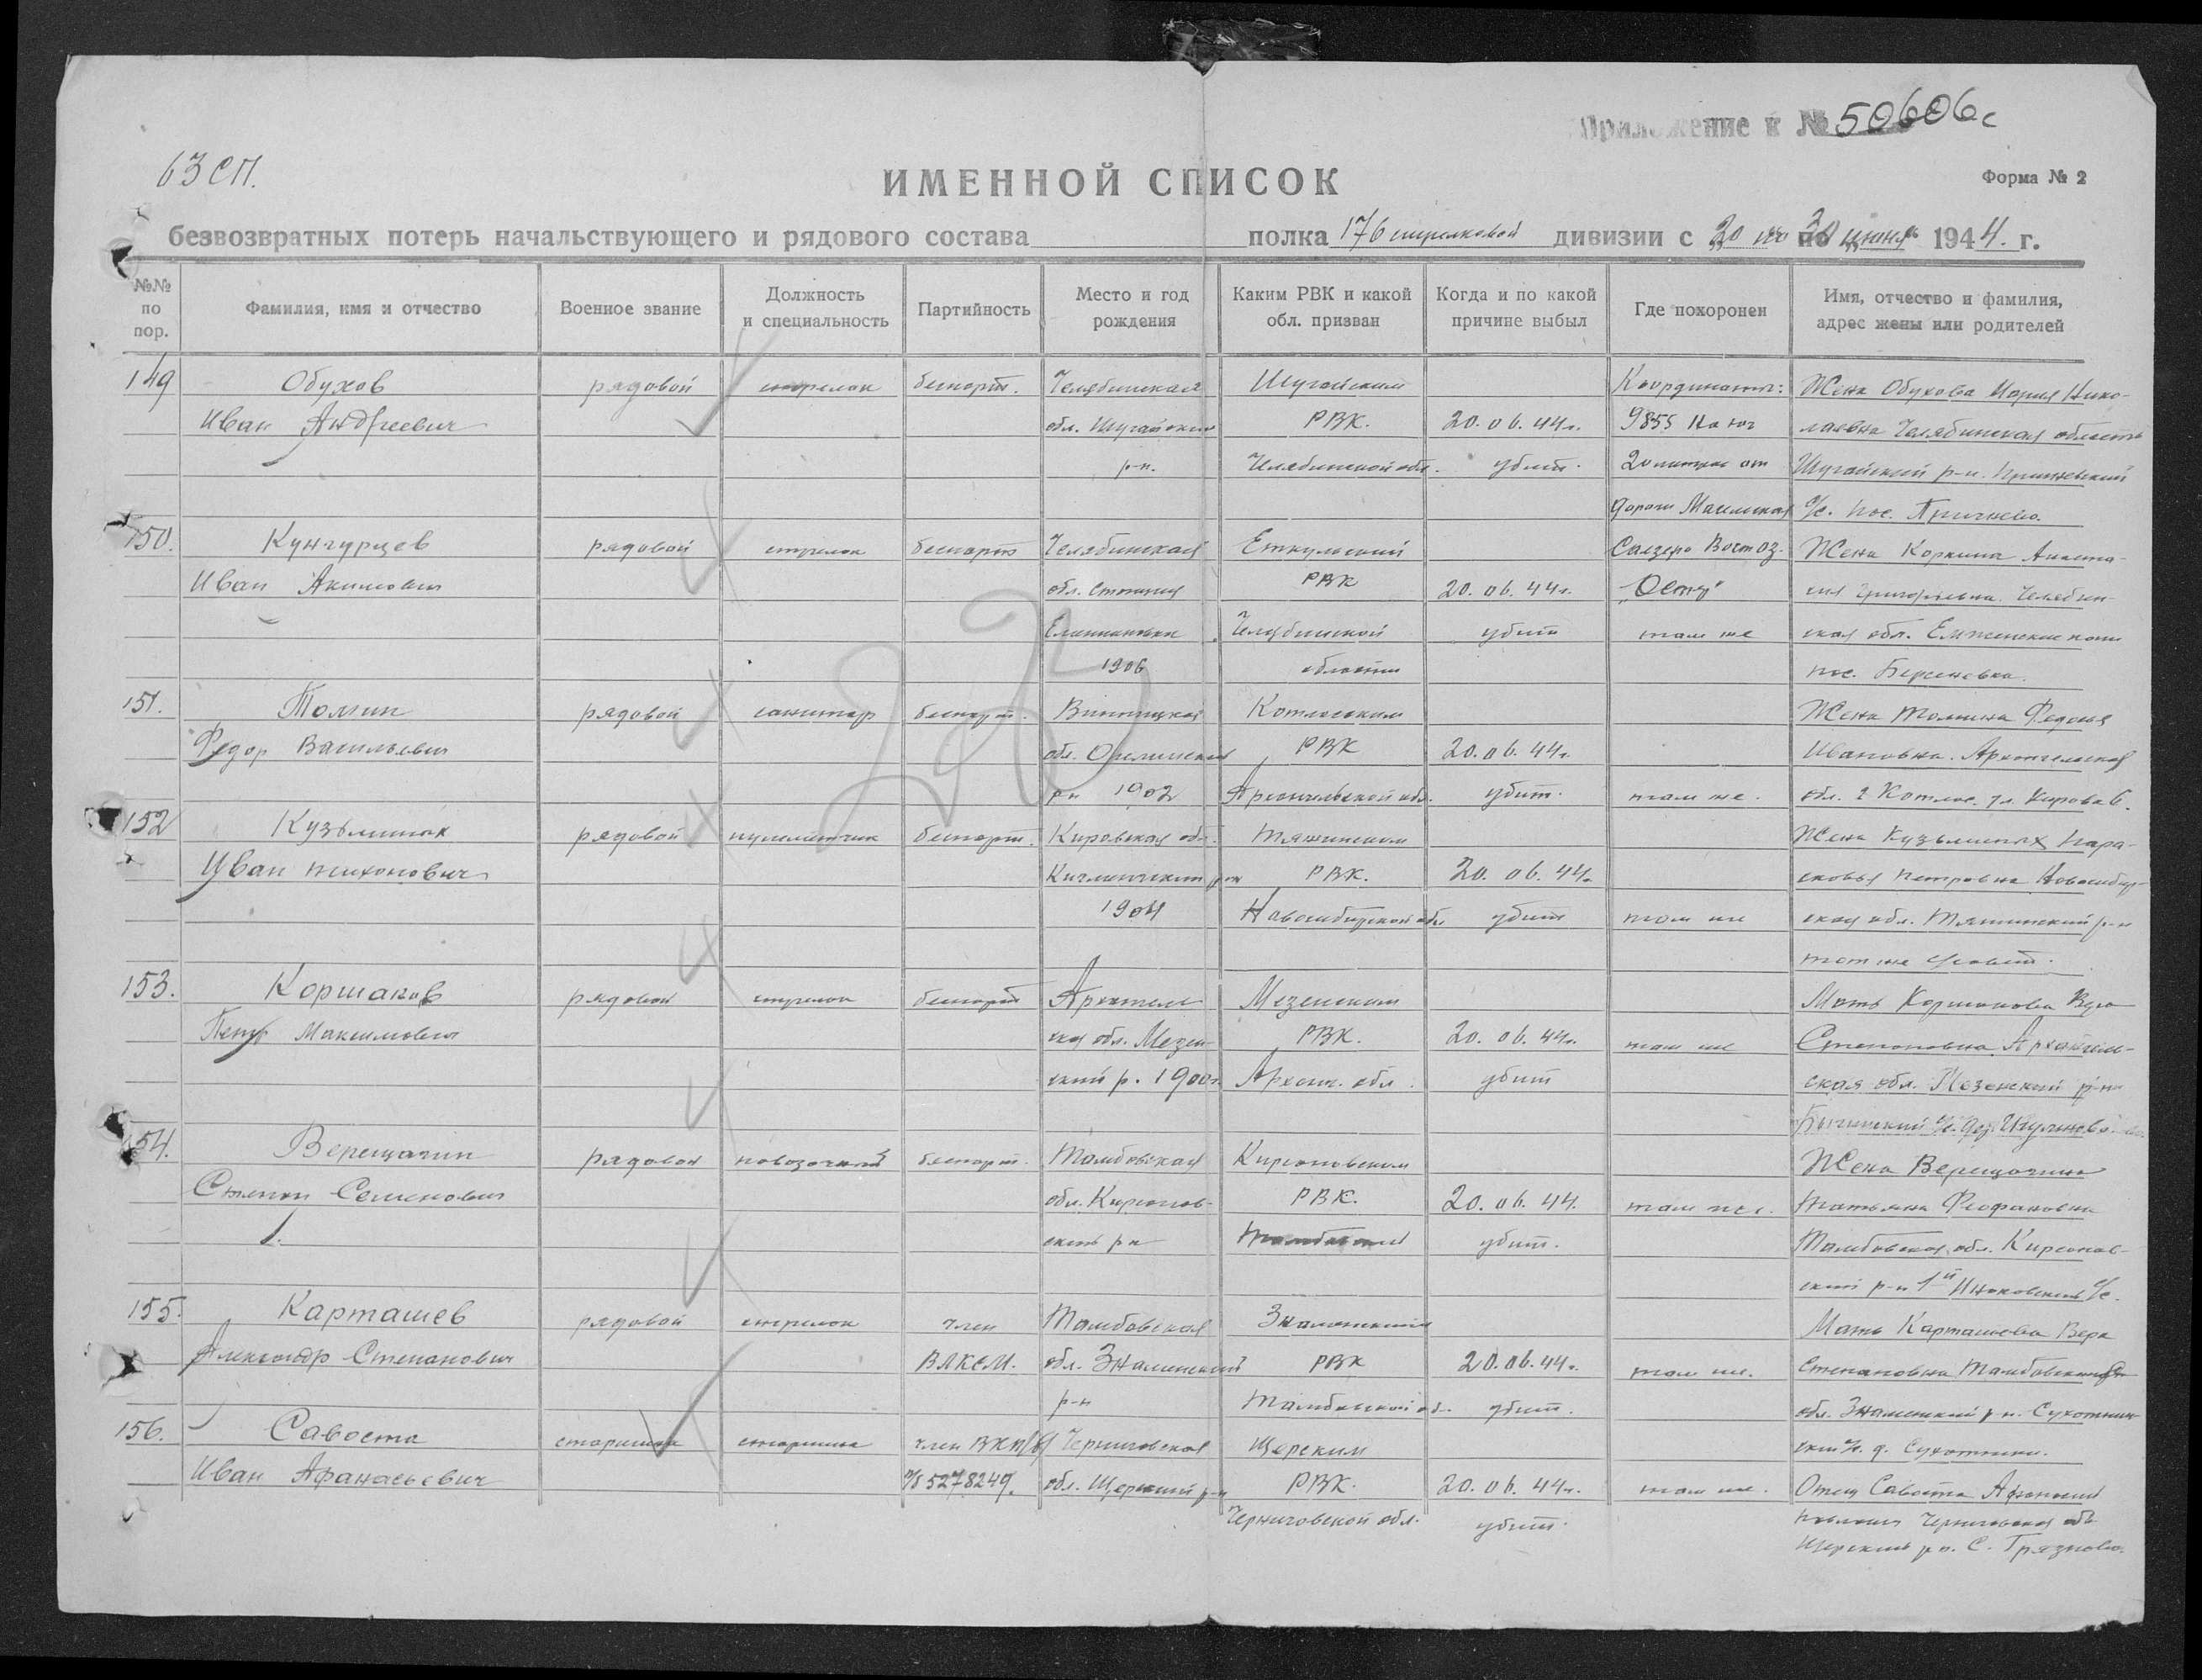 Приложение к № 50606с
63 СП.
ИМЕННОЙ СПИСОК
Форма № 2
безвозвратных потерь начальствующего и рядового состава полка 176 стрелковой дивизии с 20 по 30 июня 1944. г.
№№ по пор.
Фамилия, имя и отчество
Военное звание
Должность и специальность
Партийность
Место и год рождения
Каким РВК и какой обл. призван
Когда и по какой причине выбыл
Где похоронен
Имя, отчество и фамилия, адрес жены или родителей
149 Обухов рядовой стрелок беспарт. Челябинская Координаты: Жена Обухова Мария Нико-
Иван Андреевич обл. РВК. 20.06.44г. 9855 На юг лаевна Челябинская область
р-н. Челябинской обл. убит. 20 метров от р-н.
дороги с/с. пос.
150. Кунгурцев рядовой стрелок беспарт Челябинская Еткульский Жена Коркина Анаста-
Иван Акимович обл. Станция РВК 20.06.44г. сия Григорьевна Челябин-
Челябинской убит там же ская обл.
1906 области пос.
151. Томин рядовой санитар беспарт. Винницкая Котласским Жена Томина
Федор Васильевич обл. РВК 20.06.44г. Ивановна. Архангельская
рн 1902 Архангельской обл. убит. там же. обл. г Котлас. ул. Кирова 6.
152 рядовой пулеметчик беспарт. Кировская обл. Тяжинским Жена Кузьминых Пара-
Иван Тихонович РВК. 20.06.44г. сковья Петровна Новосибир-
1904 Новосибирской обл убит там же ская обл. Тяжинский р-н
тот же с/совет.
153. Коршаков рядовой стрелок беспарт Архангель Мезенским Мать Коршакова
Петр Максимович ская обл. Мезен- РВК. 20.06.44г. там же Степановна Архангель-
ский р. 1900г. Арханг. обл. убит ская обл. Мезенский р-н
с/с. дер.
154. Верещагин рядовой повозочный беспарт. Тамбовская Кирсановским Жена Верещагина
Степан Семенович обл. Кирсанов- РВК. 20.06.44. там же. Татьяна Феофановна
ский рн убит. Тамбовская обл. Кирсанов-
ский р-н 1й Иноковский с/с.
155. Карташев рядовой стрелок член Тамбовская Знаменским Мать Карташева Вера
Александр Степанович ВЛКСМ. обл. Знаменский РВК 20.06.44г. там же. Степановна Тамбовская
р-н Тамбовской об. убит. обл. Знаменский р-н. Сухотин-
ский с/с. д. Сухотинка.
156. Савоста старшина старшина член ВКП(б) Черниговская Щорским
Иван Афанасьевич п/б 5278249. обл. Щорский р-н РВК. 20.06.44г. там же. Отец Савоста Афанасий
Черниговской обл. убит. Павлович Черниговская обл